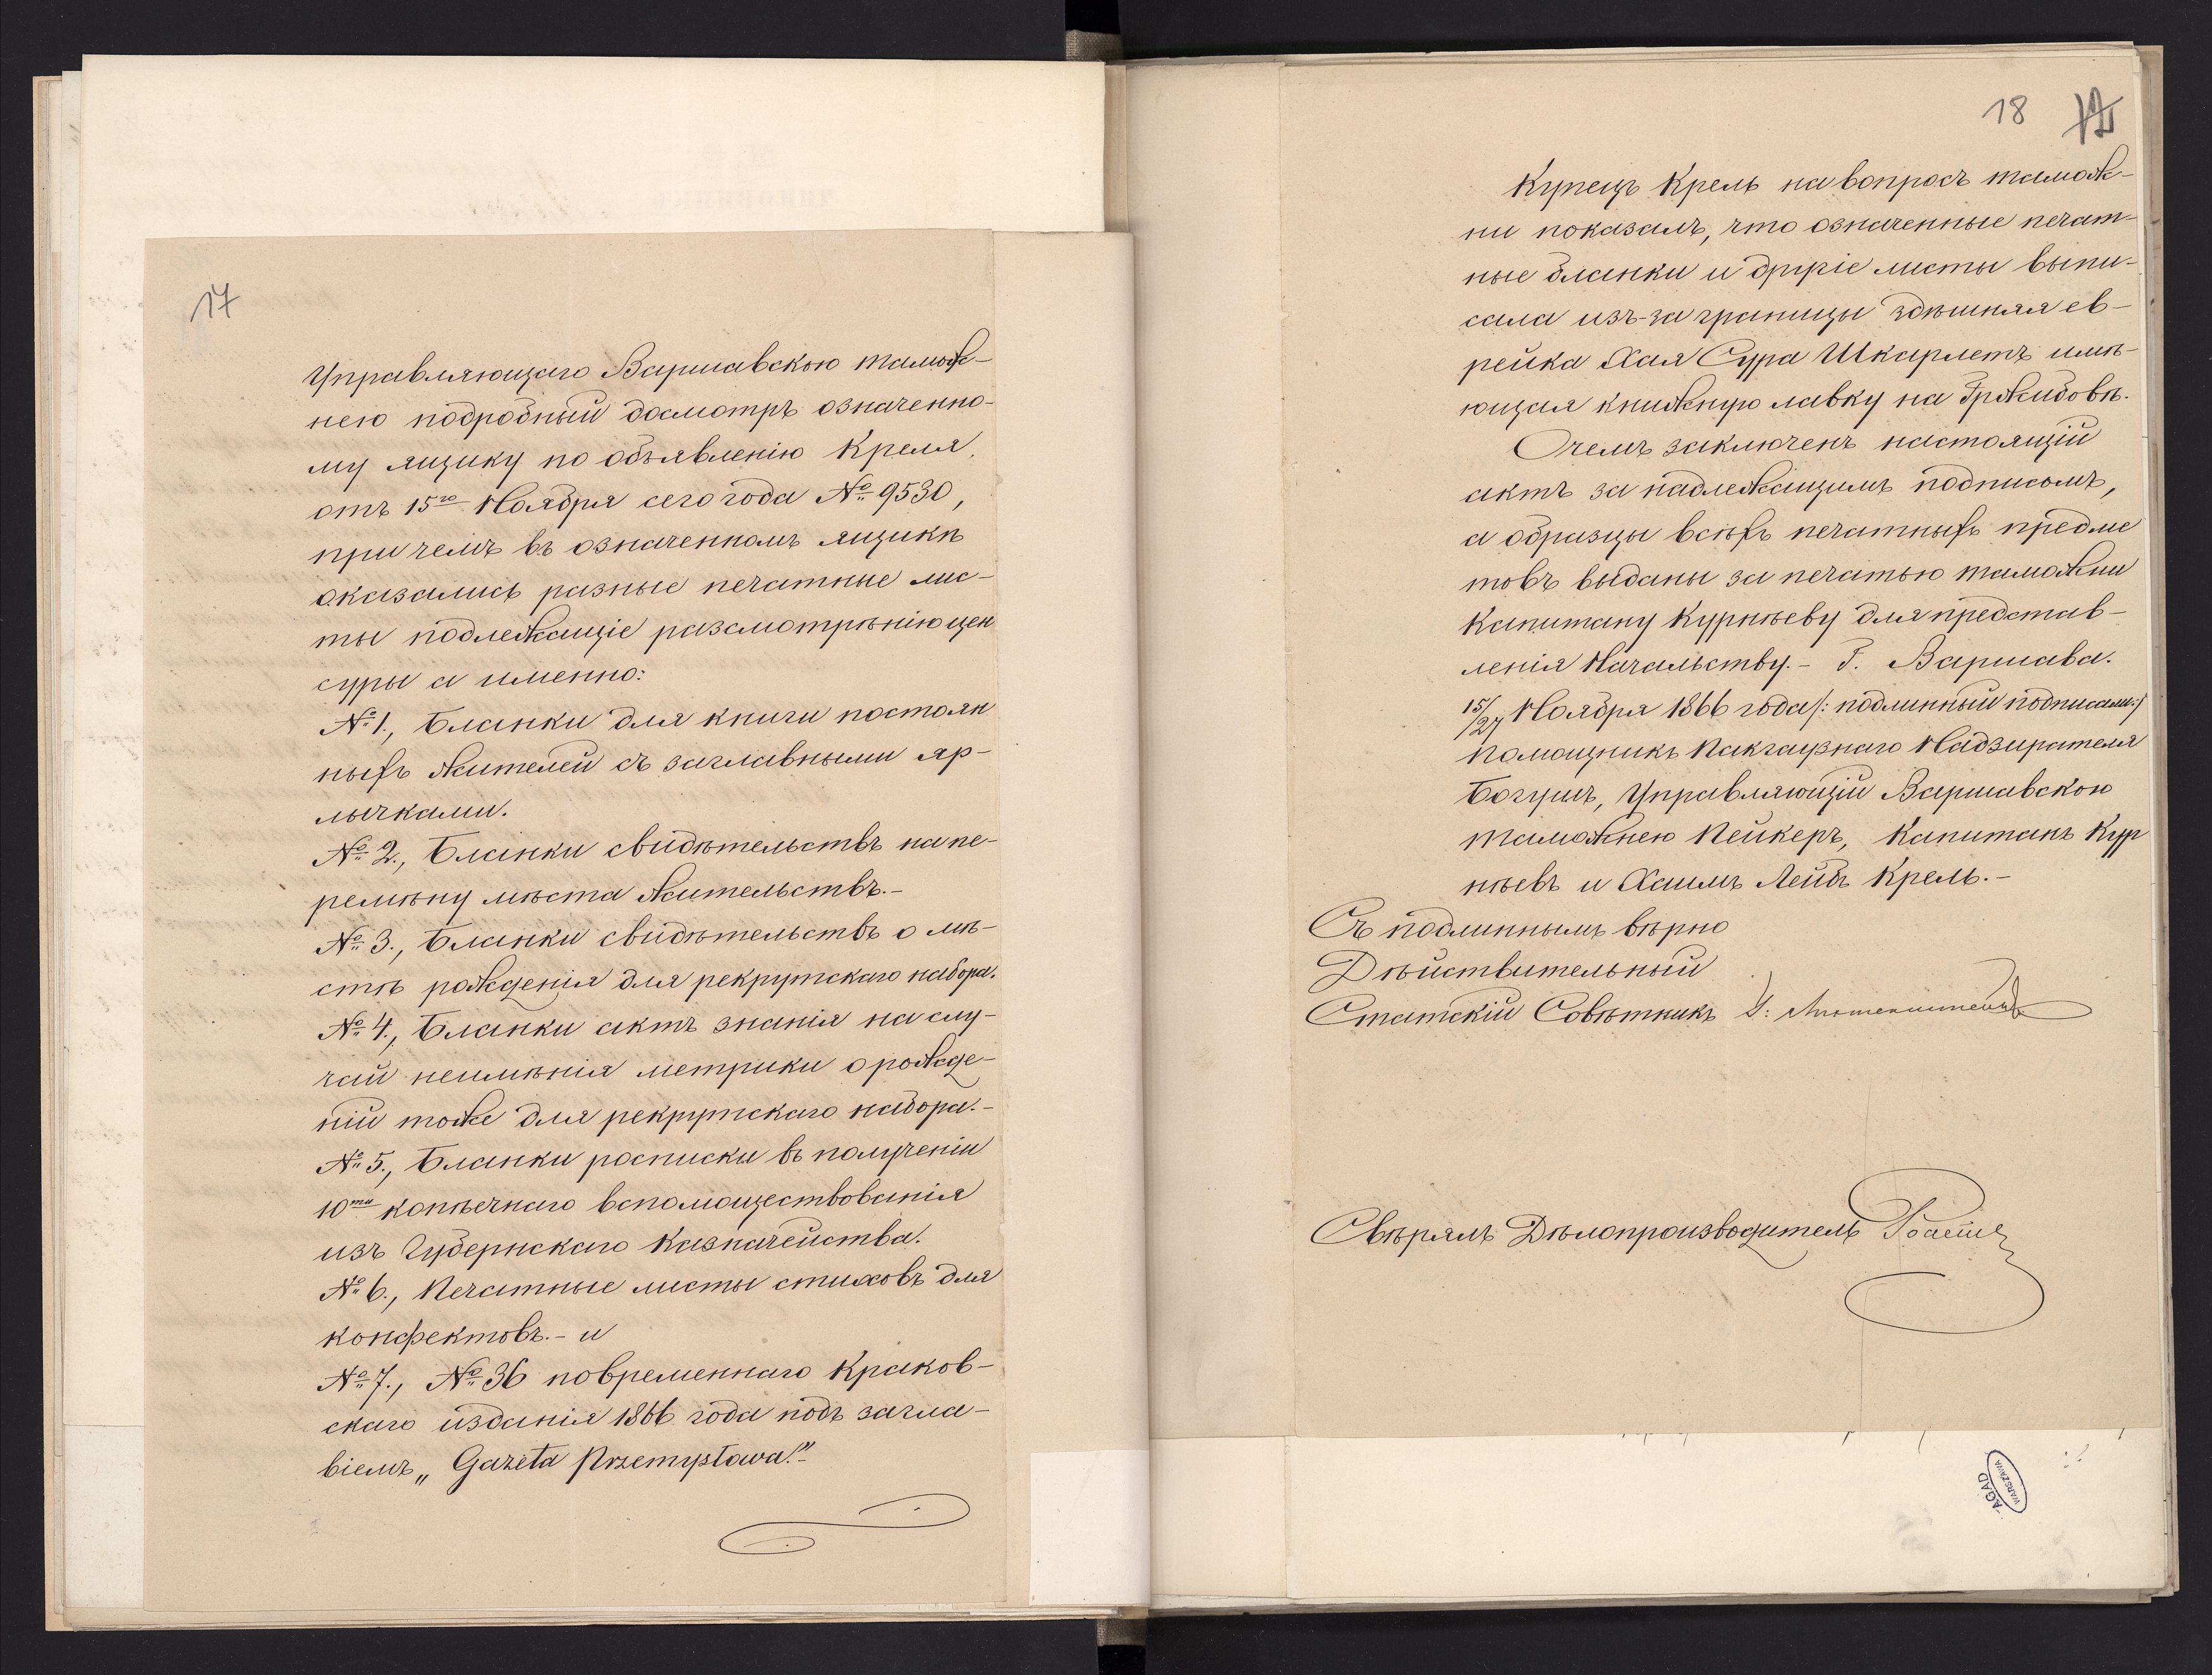 17
Управляющаго Варшавскою тамож-
нею подробный досмотръ означенно-
му ящику по объявленію Креля,
отъ 15го Ноября сего года № 9530,
при чемъ въ означенномъ ящикѣ
оказались разные печатные лис-
ты подлежащіе разсмотрѣнію цен
суры а именно:
№ 1., Бланки для книги постоян
ныхъ жителей съ заглавными яр-
лычками.
№ 2., Бланки свидѣтельствъ на пе-
ремѣну мѣста жительствъ.-
№ 3., Бланки свидѣтельствъ о мѣ-
стѣ рожденія для рекрутскаго набора.
№ 4., Бланки актъ знанія на слу-
чай неимѣнія метрики о рожде-
ніи тоже для рекрутскаго набора.-
№ 5., Бланки росписки въ полученіи
10ти копѣечнаго вспомоществованія
изъ Губернскаго Казначейства.
№ 6., Печатные листы стиховъ для
конфектовъ.- и
№ 7., № 36 повременнаго Краков-
скаго изданія 1866 года подъ загла-
віемъ „Gazeta Przemysłowa."-
18
Купецъ Крель на вопросъ тамож-
ни показалъ, что означенные печат-
ные бланки и другіе листы выпи-
сала изъ-за границы здѣшняя ев-
рейка Хая Сура Шкарлетъ имѣ-
ющая книжную лавку на Гржибовѣ.
О чемъ заключенъ настоящій
актъ за надлежащимъ подписомъ,
а образцы всѣхъ печатныхъ предме
товъ выданы за печатью таможни
Капитану Курнѣеву для представ-
ленія Начальству.- Г. Варшава.
15/27 Ноября 1866 года /: подлинный подписали:/
Помощникъ Пакгаузнаго Надзирателя
Богушъ, Управляющій Варшавскою
таможнею Пейкеръ, Капитанъ Кур
нѣевъ и Хаимъ Лейбъ Крель.-
Съ подлиннымъ вѣрно
Дѣйствительный
Статскій Совѣтникъ
Свѣрялъ Дѣлопроизводитель
AGAD
WARSZAWA